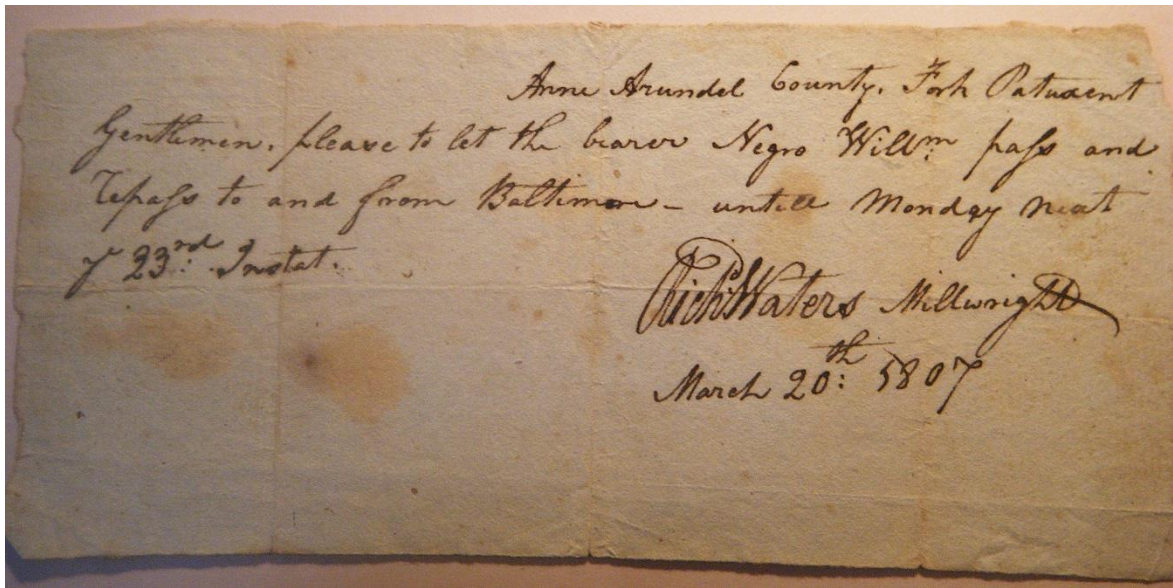 Anne Arundel County. Fork Patuxent
Gentlemen. please to let the bearer Negro Willm. pass and
repass to and from Baltimore – untill Monday next
ye 23rd. Instat.
Richd. Waters Millwright
March 20th: 1807